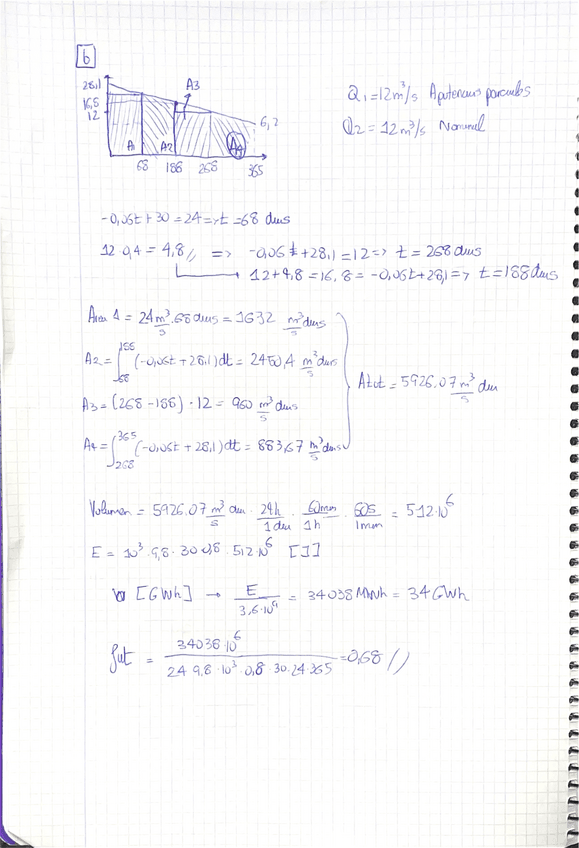 b
28,1
16,8
12
A3
6,2
A1
A2
A4
68 188 268 365
Q1 = 12 m³/s
Q2 = 12 m³/s Nominal
-0,06t + 30 = 24 => t = 68 dias
12 · 0,4 = 4,8 // => -0,06t + 28,1 = 12 => t = 268 dias
12 + 4,8 = 16,8 = -0,06t + 28,1 => t = 188 dias
Area 1 = 24 m³/s · 68 dias = 1632 m³/s dias
A2 = ∫₆₈¹⁸⁸ (-0,06t + 28,1) dt = 2450,4 m³/s dias
A3 = (268 - 188) · 12 = 960 m³/s dias
A4 = ∫₂₆₈³⁶⁵ (-0,06t + 28,1) dt = 883,67 m³/s dias
Atot = 5926,07 m³/s dia
Volumen = 5926,07 m³/s dia · 24h/1 dia · 60min/1h · 60s/1min = 512·10⁶
E = 10³ · 9,8 · 30 · 0,8 · 512·10⁶ [J]
[GWh] → E/3,6·10⁹ = 34038 MWh = 34 GWh
fut = 34038·10⁶ / 24·9,8·10³·0,8·30·24·365 = 0,68 //